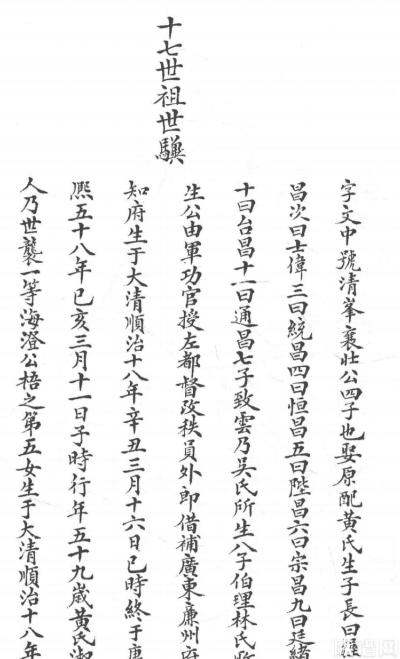 十七世祖世驥
字文中號清峯襄壯公四子也娶原配黃氏生子長曰
昌次曰士偉三曰統昌四曰恒昌五曰陞昌六曰宗昌九曰廷緒
十曰台昌十一曰通昌七子致雲乃吳氏所生八子伯理林氏所
生公由軍功官授左都督改秩員外即借補廣東廉州府
知府生于大清順治十八年辛丑三月十六日巳時終于康
熈五十八年已亥三月十一日子時行年五十九歲黃氏淑
人乃世襲一等海澄公梧之第五女生于大清順治十八年